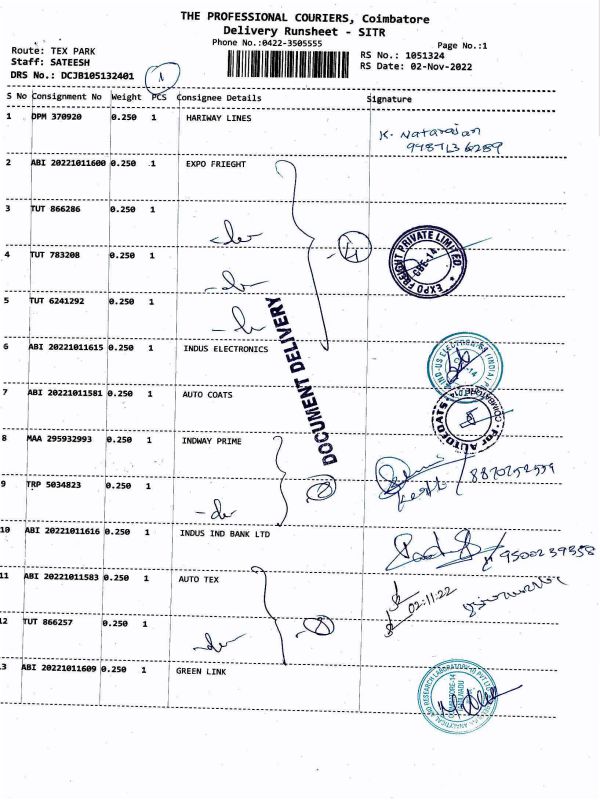 THE PROFESSIONAL COURIERS, Coimbatore
Delivery Runsheet - SITR
Phone No.:0422-3505555
Page No.:1
Route: TEX PARK
Staff: SATEESH
DRS No.: DCJB105132401
1
RS No.: 1051324
RS Date: 02-Nov-2022
S No Consignment No Weight PCS Consignee Details Signature
1 DPM 370920 0.250 1 HARIWAY LINES
K. Natarajan
2 ABI 20221011600 0.250 1 EXPO FRIEGHT
3 TUT 866286 0.250 1
4 TUT 783208 0.250 1
EXPO FREIGHT PRIVATE LIMITED.
CBE-14
5 TUT 6241292 0.250 1
DOCUMENT DELIVERY
6 ABI 20221011615 0.250 1 INDUS ELECTRONICS
7 ABI 20221011581 0.250 1 AUTO COATS
For AUTOCOATS
8 MAA 295932993 0.250 1 INDWAY PRIME
9 TRP 5034823 0.250 1
10 ABI 20221011616 0.250 1 INDUS IND BANK LTD
9500239558
11 ABI 20221011583 0.250 1 AUTO TEX
02:11:22
12 TUT 866257 0.250 1
13 ABI 20221011609 0.250 1 GREEN LINK